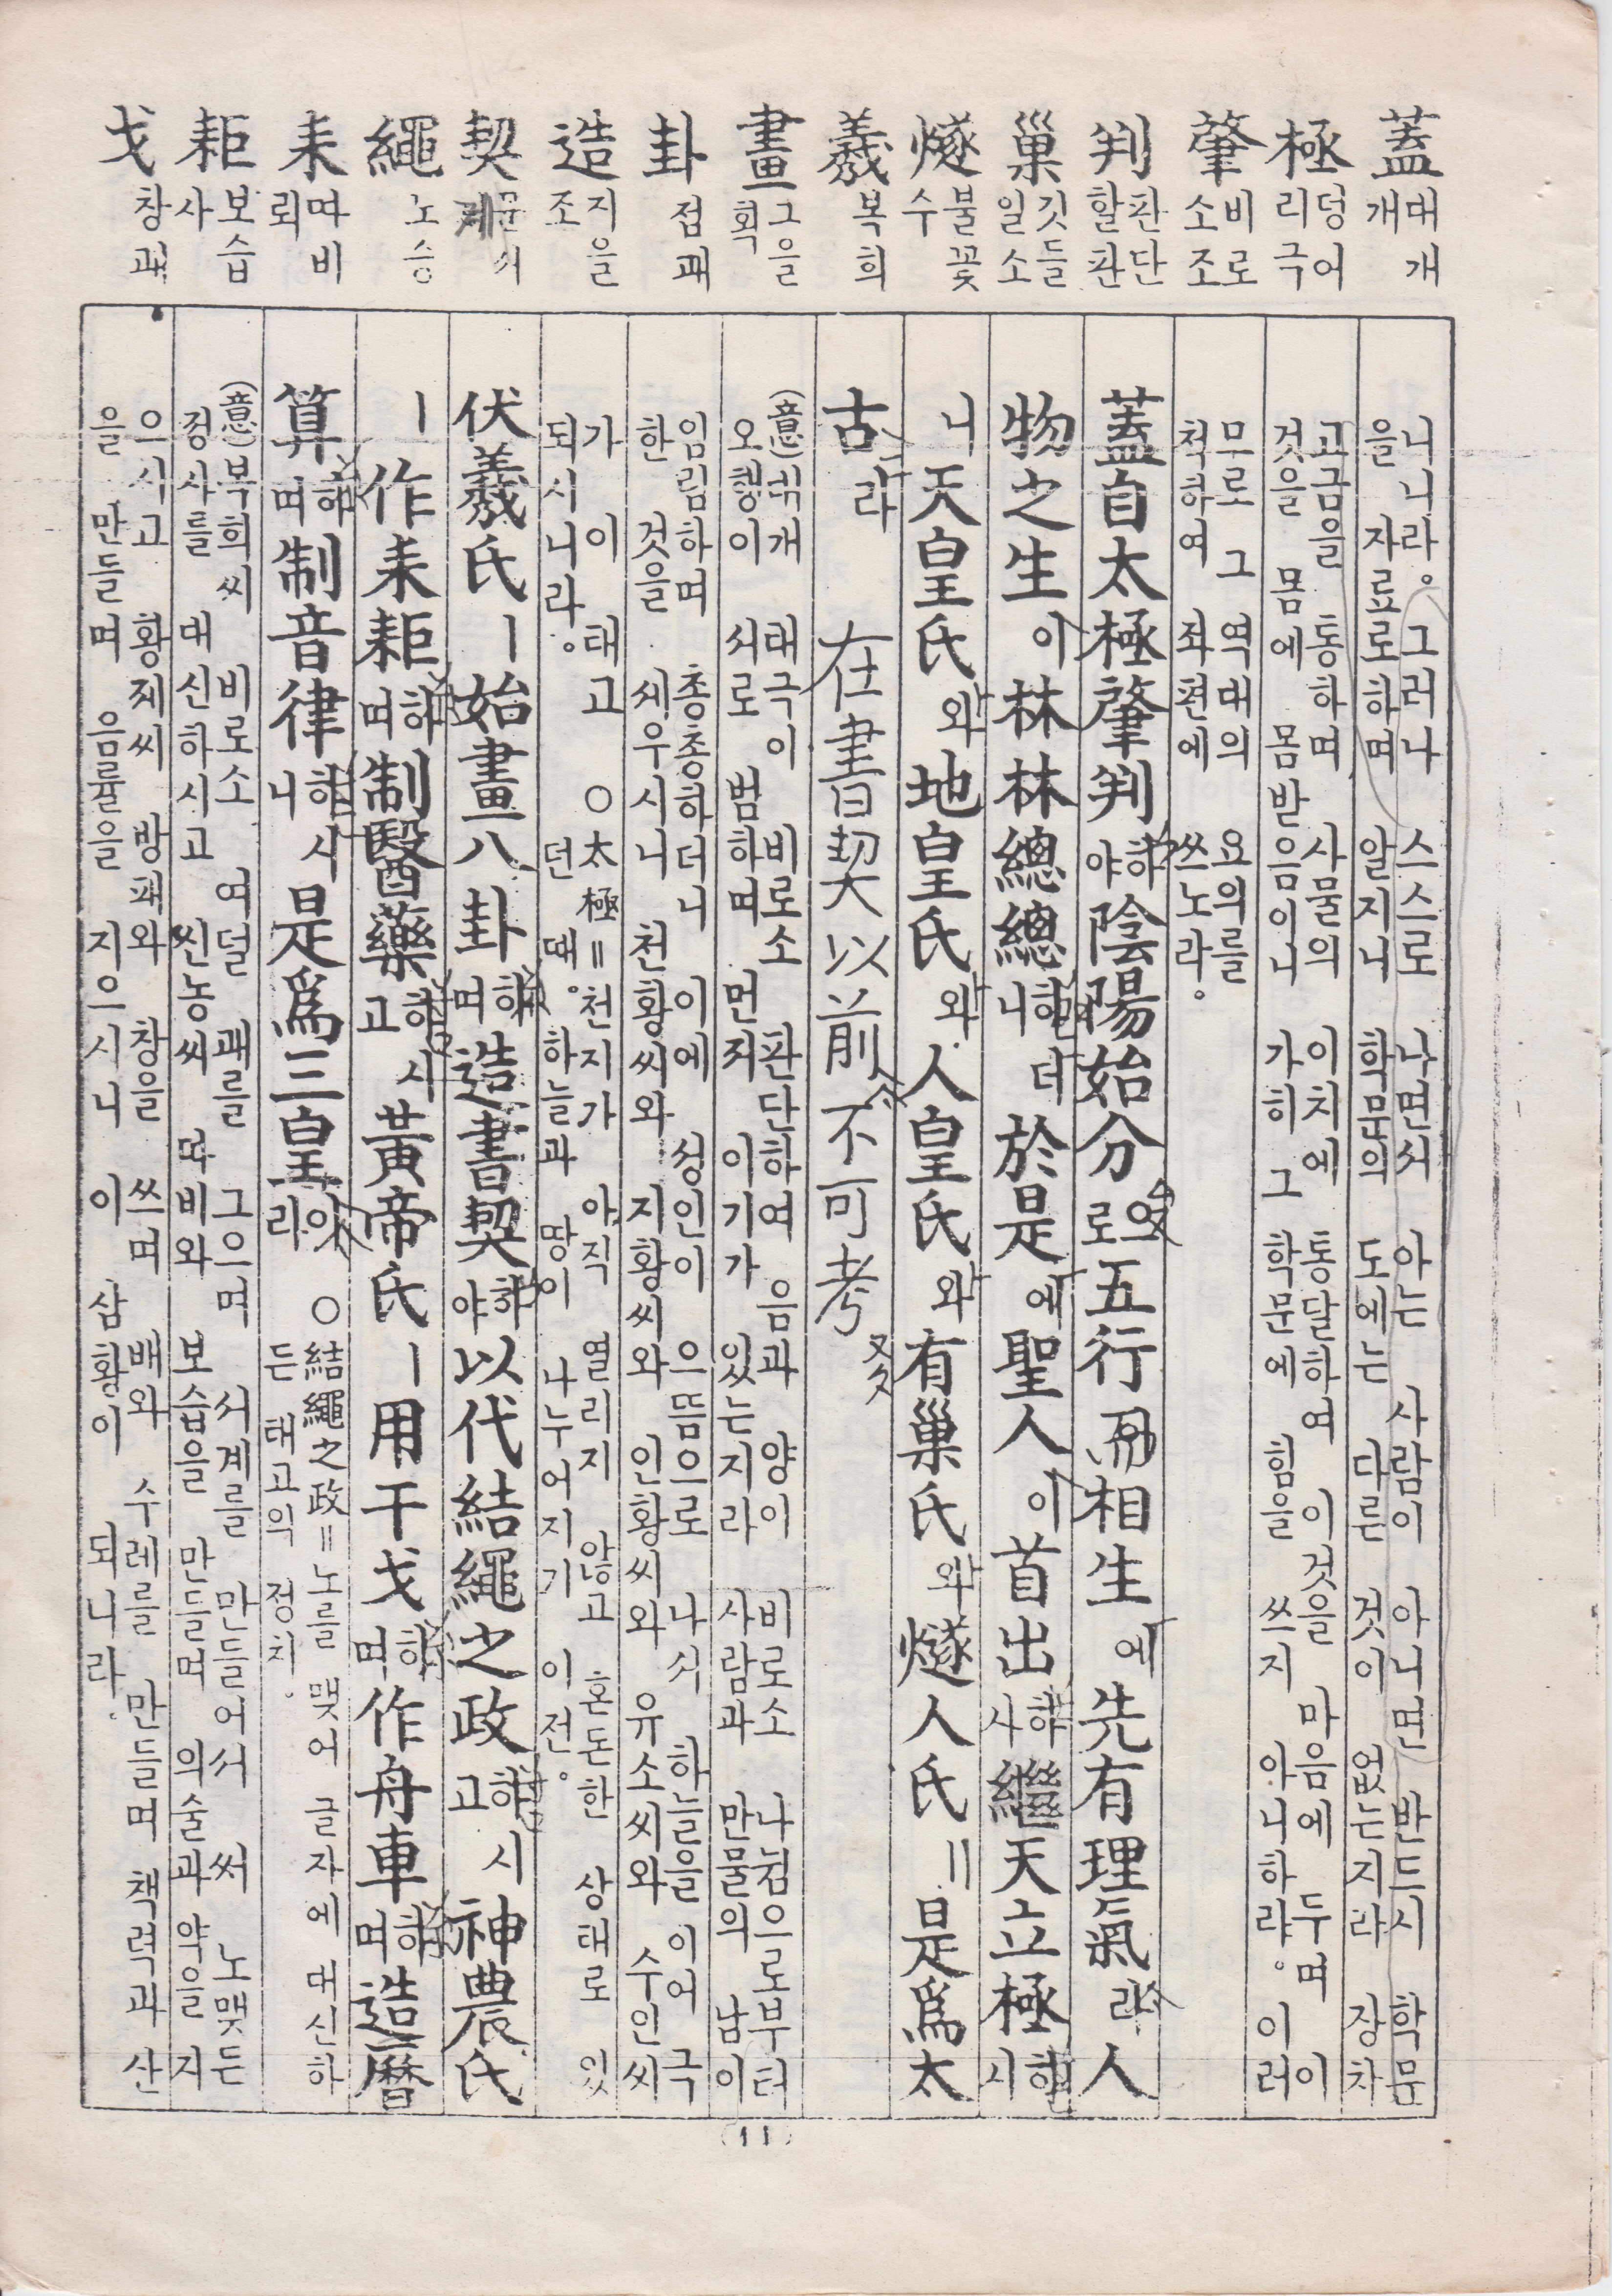 蓋 대개 개
極 덩어리 극
肇 비로소 조
判 판단할 판
巢 깃들일 소
燧 불꽃 수
羲 복희
畫 그을 획
卦 점괘
造 지을 조
契 문서 계
繩 노 승
耒 따비 뢰
耟 보습 사
戈 창 과
니니라。 그러나 스스로 나면서 아는 사람이 아니면 반드시 학문
을 자료로하며 알지니 학문의 도에는 다른 것이 없는지라 장차
고금을 통하며 사물의 이치에 통달하여 이것을 마음에 두며 이
것을 몸에 몸받음이니 가히 그 학문에 힘을 쓰지 아니하랴。 이러
무로 그 역대의 요의를
척하여 좌편에 쓰노라。
蓋自太極肇判하야 陰陽始分으로 五行 而相生에 先有理氣라 人
物之生이 林林總總하더니 於是에 聖人이 首出하사 繼天立極하시
니 天皇氏와 地皇氏와 人皇氏와 有巢氏와 燧人氏ㅣㅣ 是爲太
古라 在書契以前 不可考
(意)대개 태극이 비로소 판단하여 음과 양이 비로소 나뉨으로부터
오행이 서로 범하며 먼저 이기가 있는지라 사람과 만물의 남이
임림하며 총총하더니 이에 성인이 으뜸으로 나서 하늘을 이어 극
한 것을 세우시니 천황씨와 지황씨와 인황씨와 유소씨와 수인씨
가 이 태고 ○太極=천지가 아직 열리지 않고 혼돈한 상태로 있
되시니라。 던 때。 하늘과 땅이 나누어지기 이전。
伏羲氏ㅣ 始畫八卦하며 造書契하야 以代結繩之政하고시 神農氏
ㅣ 作耒耟하며 制醫藥하고시 黃帝氏ㅣ 用干戈하며 作舟車하며 造曆
算하며 制音律하시니 是爲三皇이라 ○結繩之政=노를 맺어 글자에 대신하
든 태고의 정치.
(意)복희씨 비로소 여덟 괘를 그으며 서계를 만들어서 써 노맺든
정사를 대신하시고 씬농씨 따비와 보습을 만들며 의술과 약을 지
으시고 황제씨 방패와 창을 쓰며 배와 수레를 만들며 책력과 산
을 만들며 음률을 지으시니 이 삼황이 되니라.
(11)